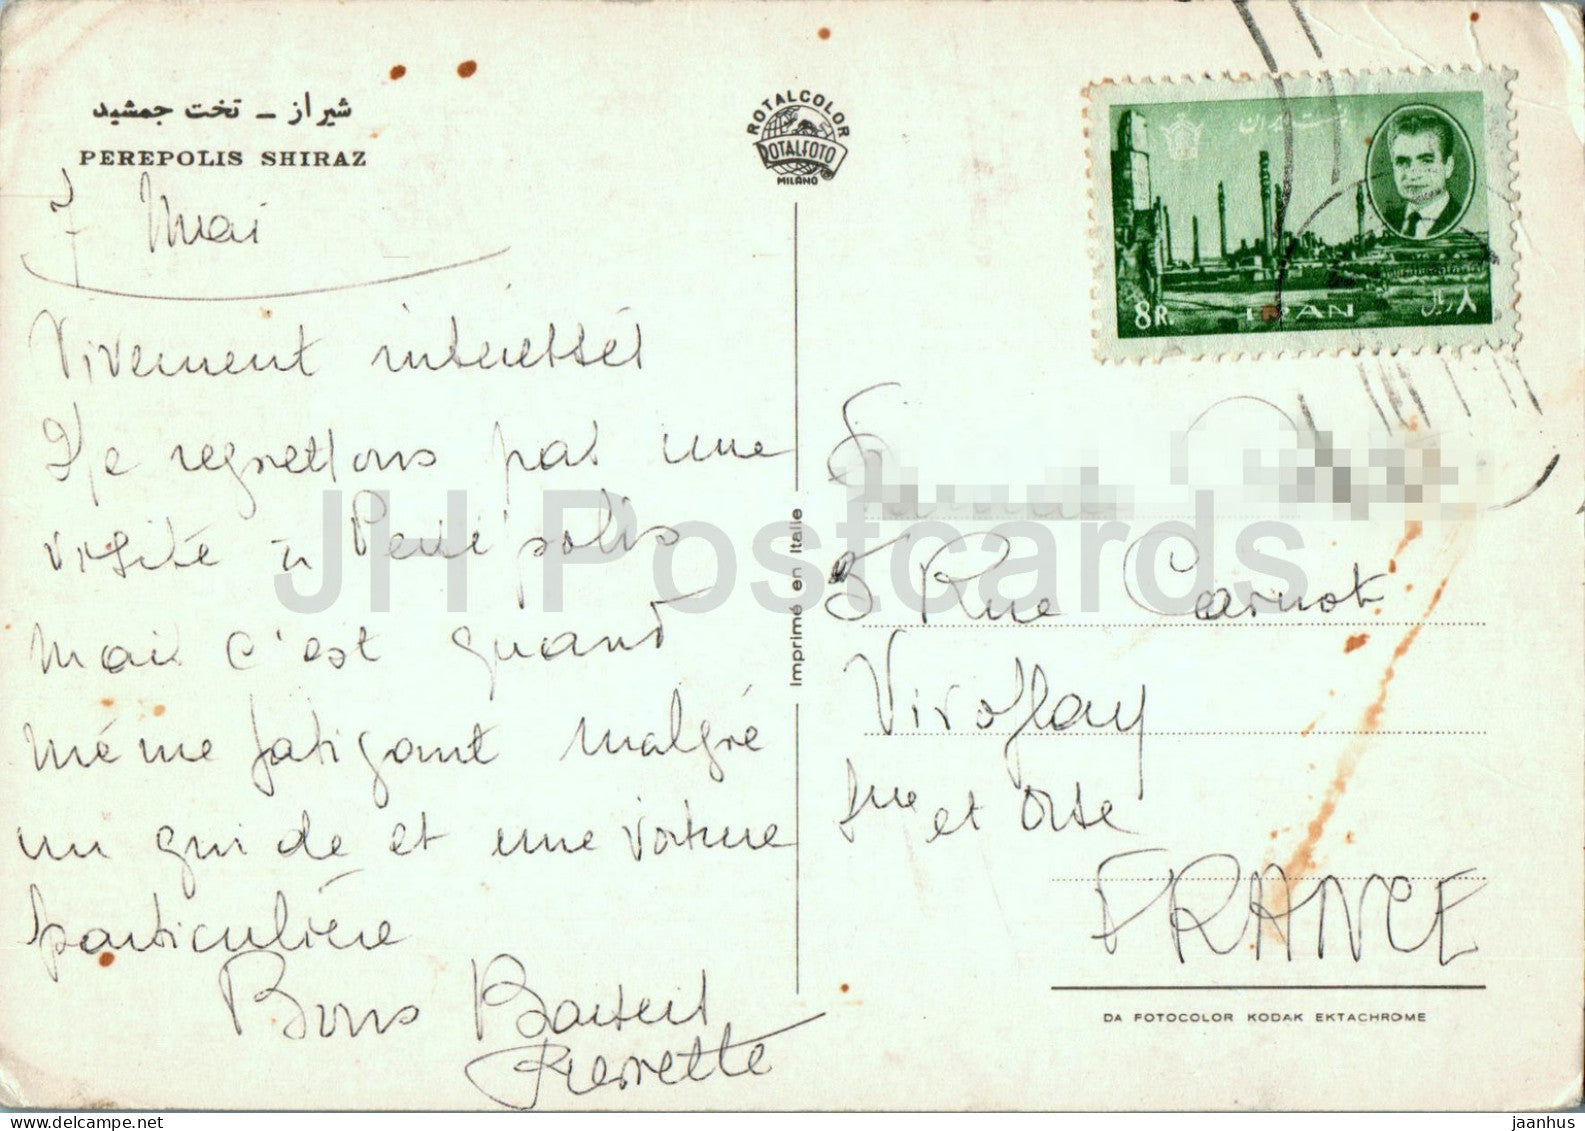 شیراز ــ تخت جمشید
PEREPOLIS SHIRAZ
7 Mai
Vivement intéressés
Je regrettons pas une
visite à Persépolis
mais c'est quand
même fatigant malgré
un guide et une voiture
particulière
Bons Baisers
Pierrette
ROTALCOLOR
ROTALFOTO
MILANO
Imprimé en Italie
8 R.
IRAN
۸ ریال
5 Rue Carnot
Viroflay
et Oise
FRANCE
DA FOTOCOLOR KODAK EKTACHROME
JH Postcards
jaanhus